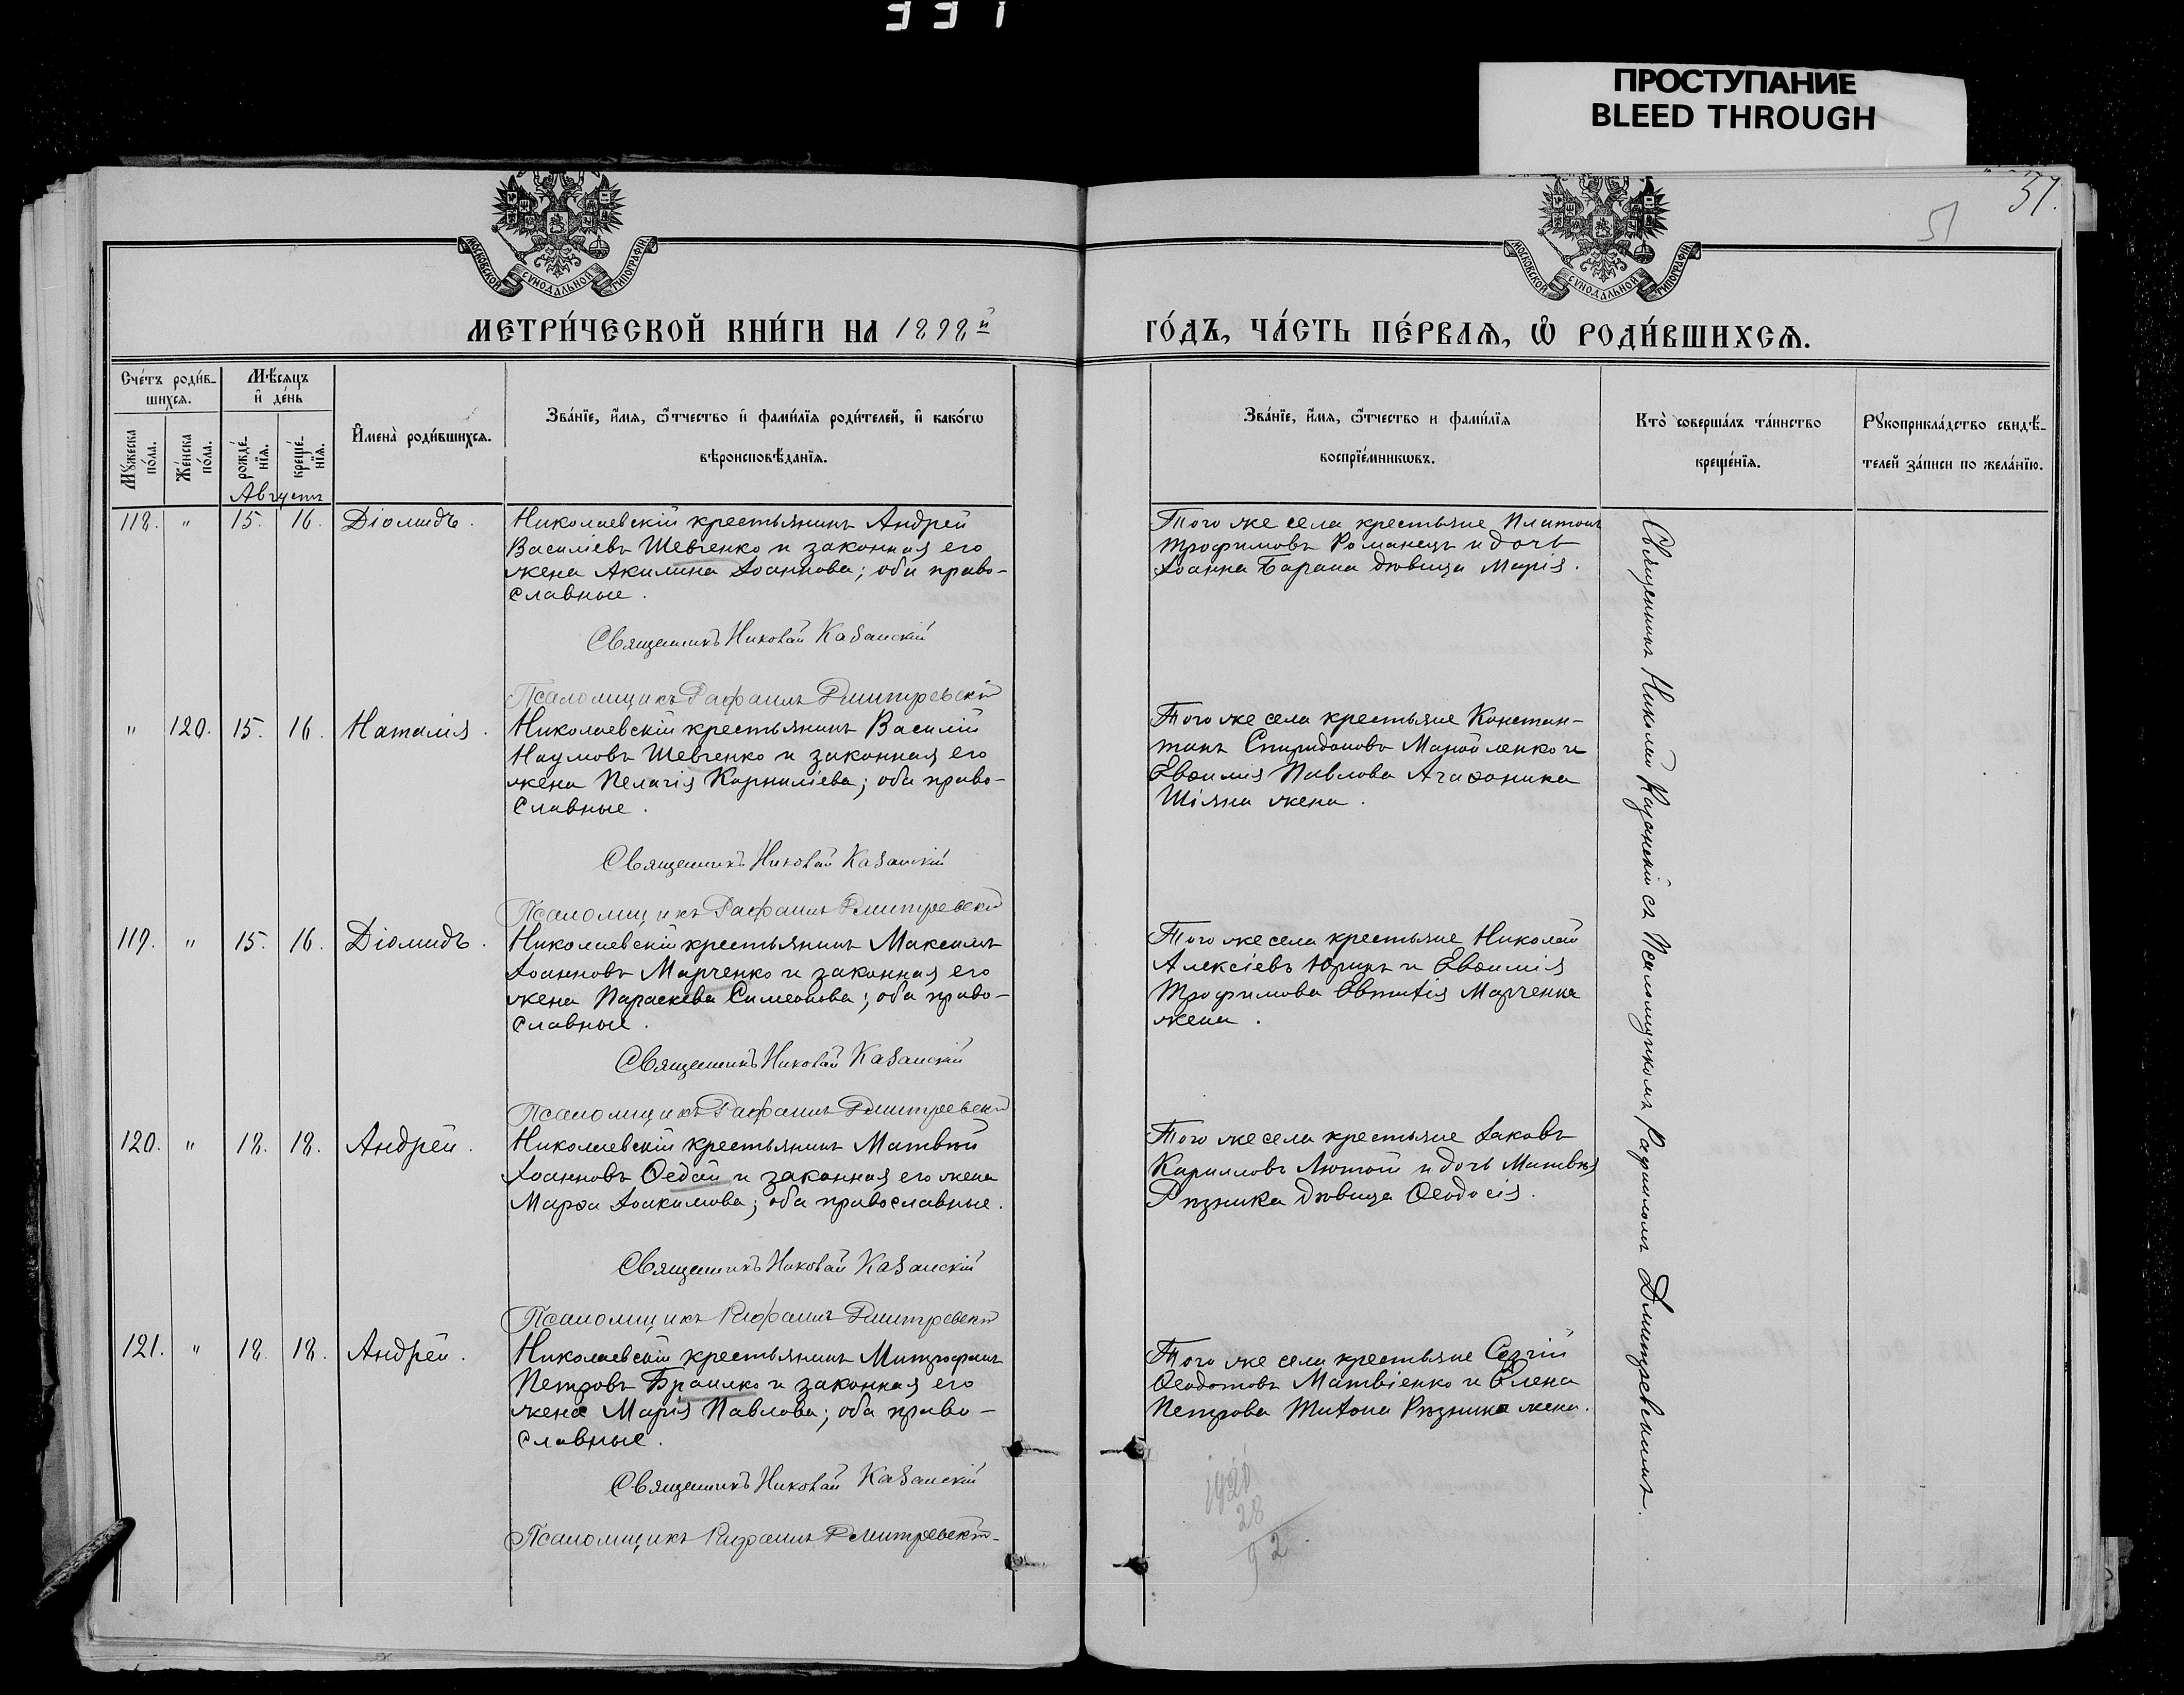 331
ПРОСТУПАНИЕ
BLEED THROUGH
МОСКОВСКОЙ СѴНОДАЛЬНОЙ ТИПОГРАФІИ
МОСКОВСКОЙ СѴНОДАЛЬНОЙ ТИПОГРАФІИ
51.
51
МЕТРИ́ЧЕСКОЙ КНИ́ГИ НА 1898й
ГО́ДЪ, ЧА́СТЬ ПЕ́РВАѦ, Ѽ РОДИ́ВШИХСѦ.
Сче́тъ роди́в-
шихсѧ.
Мѣ́сяцъ
и҆ де́нь
Мꙋ́жеска по́ла.
Же́нска по́ла.
рожде́-нїѧ.
креще́-нїѧ.
И҆мена̀ роди́вшихсѧ.
Зва́нїе, и҆́мѧ, ѻ҆́тчество и҆ фами́лїѧ роди́телей, и҆ како́гѡ
вѣроисповѣ́данїѧ.
Зва́нїе, и҆́мѧ, ѻ҆́тчество и фами́лїѧ
воспрїе́мникѡвъ.
Кто̀ соверша́лъ та́инство
креще́нїѧ.
Рꙋкоприкла́дство свидѣ́-
телей за́писи по жела́нїю.
Августъ
118. " 15. 16. Діомидъ.
Николаевскій крестьянинъ Андрей
Василіевъ Шевченко и законная его
жена Акилина Іоаннова; оба право-
славные.
Священникъ Николай Казанскій
Псаломщикъ Рафаилъ Дмитревскій
Того же села крестьяне Платонъ
Трофимовъ Романецъ и дочь
Іоанна Барана дѣвица Марія.
" 120. 15. 16. Наталія.
Николаевскій крестьянинъ Василій
Наумовъ Шевченко и законная его
жена Пелагія Корниліева; оба право-
славные.
Священникъ Николай Казанскій
Псаломщикъ Рафаилъ Дмитревскій
Того же села крестьяне Констан-
тинъ Спиридоновъ Манойленко и
Евѳимія Павлова Агаѳоника
Шіяна жена.
119. " 15. 16. Діомидъ.
Николаевскій крестьянинъ Максимъ
Іоанновъ Марченко и законная его
жена Параскева Симеонова; оба право-
славные.
Священникъ Николай Казанскій
Псаломщикъ Рафаилъ Дмитревскій
Того же села крестьяне Николай
Алексіевъ Юринъ и Евѳимія
Трофимова Евтихія Марченка
жена.
120. " 18. 18. Андрей.
Николаевскій крестьянинъ Матвѣй
Іоанновъ Ѳедай и законная его жена
Марѳа Іоакимова; оба православные.
Священникъ Николай Казанскій
Псаломщикъ Рафаилъ Дмитревскій
Того же села крестьяне Іаковъ
Кирилловъ Лютой и дочь Матвѣя
Рѣзника дѣвица Ѳеодосія.
121. " 18. 18. Андрей.
Николаевскій крестьянинъ Митрофанъ
Петровъ Браилко и законная его
жена Марія Павлова; оба право-
славные.
Священникъ Николай Казанскій
Псаломщикъ Рафаилъ Дмитревскій
Того же села крестьяне Сергій
Ѳеодотовъ Матвіенко и Елена
Петрова Тихона Рѣзника жена.
Священникъ Николай Казанскій съ Псаломщикомъ Рафаиломъ Дмитревскимъ.
1920
28
92